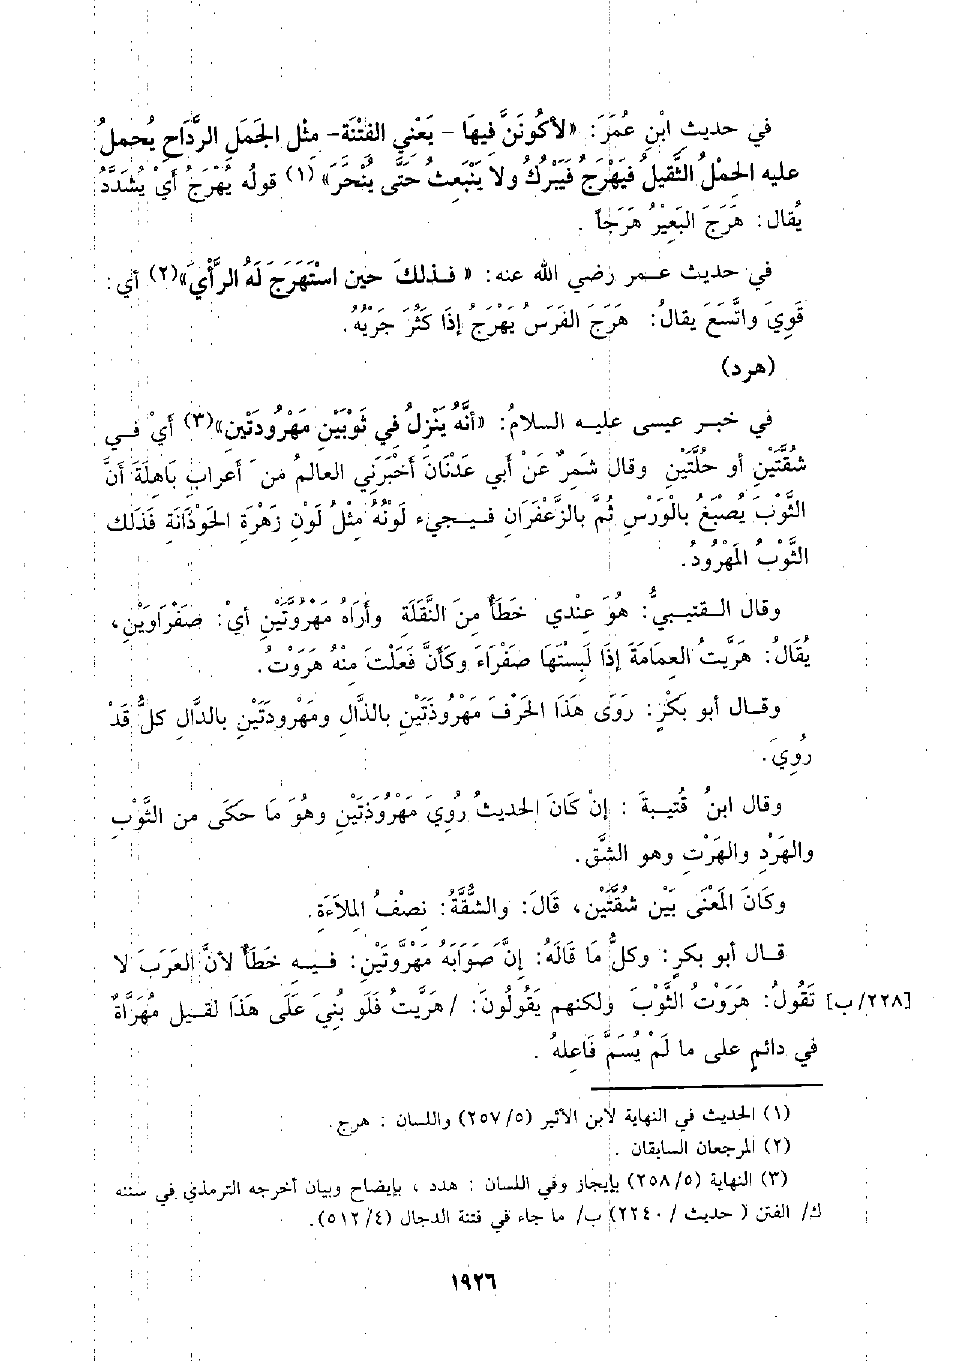 في حديثِ ابْنِ عُمَرَ: «لأكُونَنَّ فيهَا - يَعْنِي الفتْنَة- مثْل الجَمَلِ الرَّدَاحِ يُحملُ
عليه الحِمْلُ الثَّقيلُ فَيَهْرَجُ فَيَبْرُكُ ولا يَنْبَعثُ حتَّى يُنْحَرَ» (١) قولُه يُهْرَجُ أيْ يُشَدَّدُ
يُقال: هَرَجَ البَعِيْرُ هَرَجاً .
في حديث عـمر رضي الله عنه: « فـذلكَ حين اسْتَهَرَجَ لَهُ الرَّأْيَ»(٢) أي:
قَوِيَ واتَّسَعَ يقالُ: هَرَجَ الفَرَسُ يَهْرَجُ إذَا كَثُرَ جَرْيُهُ.
(هرد)
في خبـر عيسى عليـه السلامُ: «أنَّه يَنْزِلُ في ثَوْبَيْنِ مَهْرُودَتَيْنِ»(٣) أيْ فـي
شُقَّتَيْنِ أو حُلَّتَيْنِ وقال شَمِرٌ عَنْ أبي عَدْنَانَ أخْبَرَني العالمُ من أعرابِ بَاهِلَةَ أنَّ
الثَّوْبَ يُصْبَغُ بالْوَرْسِ ثُمَّ بالزَّعْفَرَانِ فـيـجيء لَوْنُهُ مثْلُ لَوْنِ زَهْرَةِ الحَوْذَانَةِ فَذَلك
الثَّوْبُ المَهْرُودُ.
وقال الـقتيـبيُّ: هُوَ عنْدي خَطَأٌ منَ النَّقَلَةِ وأُرَاهُ مَهْرُوتَيْنِ أيْ: صَفْرَاوَيْنِ،
يُقَالُ: هَرَّيتُ العِمَامَةَ إذَا لَبِسْتَها صَفْرَاءَ وكَأَنَّ فَعَلْتَ منْهُ هَرَوْتُ.
وقـال أبو بَكْرٍ: رَوَى هَذَا الحَرْفَ مَهْرُوذَتَيْنِ بالذَّالِ ومَهْرودَتَيْنِ بالدَّالِ كلٌّ قَدْ
رُوِيَ.
وقال ابنُ قُتيـبةَ : إنْ كَانَ الحَديثُ رُوِيَ مَهْرُوذَتَيْنِ وهُوَ مَا حَكَى من الثَّوْبِ
والهَرْدِ والهَرْتِ وهو الشَّق.
وكَانَ المَعْنَى بَيْن شُقَّتَيْنِ، قَالَ: والشُّقَّةُ: نصْفُ المِلاَءَة.
قـال أبو بكرٍ: وكلُّ مَا قَالَهُ: إنَّ صَوَابَهُ مَهْرَوَّتَيْنِ: فـيـه خَطَأٌ لأنَّ العَرَبَ لا
[٢٢٨/ب] تَقُولُ: هَرَوْتُ الثَّوْبَ ولكنهم يَقُولُونَ: / هَرَّيتُ فَلَو بُنِيَ عَلَى هَذَا لقـيـل مُهَرَّاةٌ
في دائمٍ على ما لَمْ يُسَمَّ فَاعلهُ .
(١) الحديث في النهاية لابن الأثير (٢٥٧/٥) واللسان : هرج.
(٢) المرجعان السابقان .
(٣) النهاية (٢٥٨/٥) بإيجاز وفي اللسان : هدد ، بإيضاح وبيان أخرجه الترمذي في سننه
ك/ الفتن ( حديث / ٢٢٤٠) ب/ ما جاء في فتنة الدجال (٥١٢/٤).
١٩٢٦